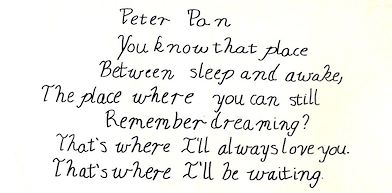 Peter Pan
You know that place
Between sleep and awake,
The place where you can still
Remember dreaming?
That's where I'll always love you.
That's where I'll be waiting.